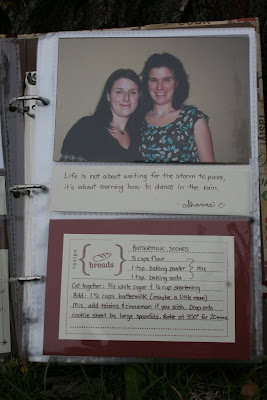 Life is not about waiting for the storm to pass,
it's about learning how to dance in the rain.
Shanna
recipe
breads
BUTTERMILK SCONES
3 cups flour
1 tsp. baking powder } mix
1 tsp. baking soda
Cut together: 2/3 white sugar & 3/4 cup shortening
Add: 1 1/4 cups buttermilk (maybe a little more)
Mix, add raisins & cinnamon if you wish. Drop onto
cookie sheet by large spoonfuls. Bake at 350° for 20mins.